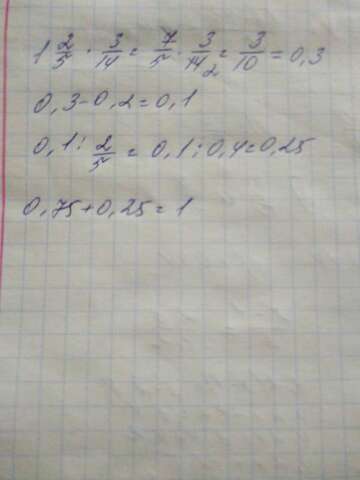 1 2/5 · 3/14 = 7/5 · 3/14 2 = 3/10 = 0,3
0,3-0,2=0,1
0,1 : 2/5 = 0,1:0,4=0,25
0,75+0,25=1